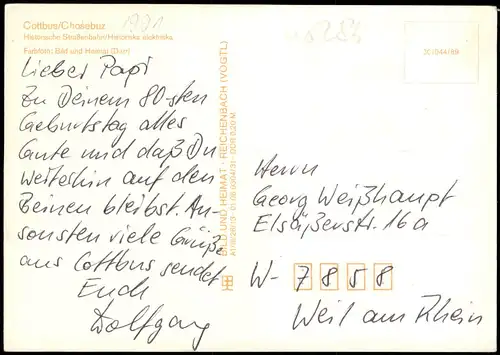 Cottbus/Chośebuz
1991
Historische Straßenbahn/Historiska elektriska
Farbfoto: Bild und Heimat
Lieber Papi
Zu Deinem 80-sten
Geburtstag alles
Gute und daß Du
Weiterhin auf den
Beinen bleibst. An-
sonsten viele Grüße
aus Cottbus sendet
Euch
Wolfgang
BILD UND HEIMAT · REICHENBACH (VOGTL)
Herrn
Georg Weißhaupt
Elsäßerstr. 16a
W- 7858
Weil am Rhein